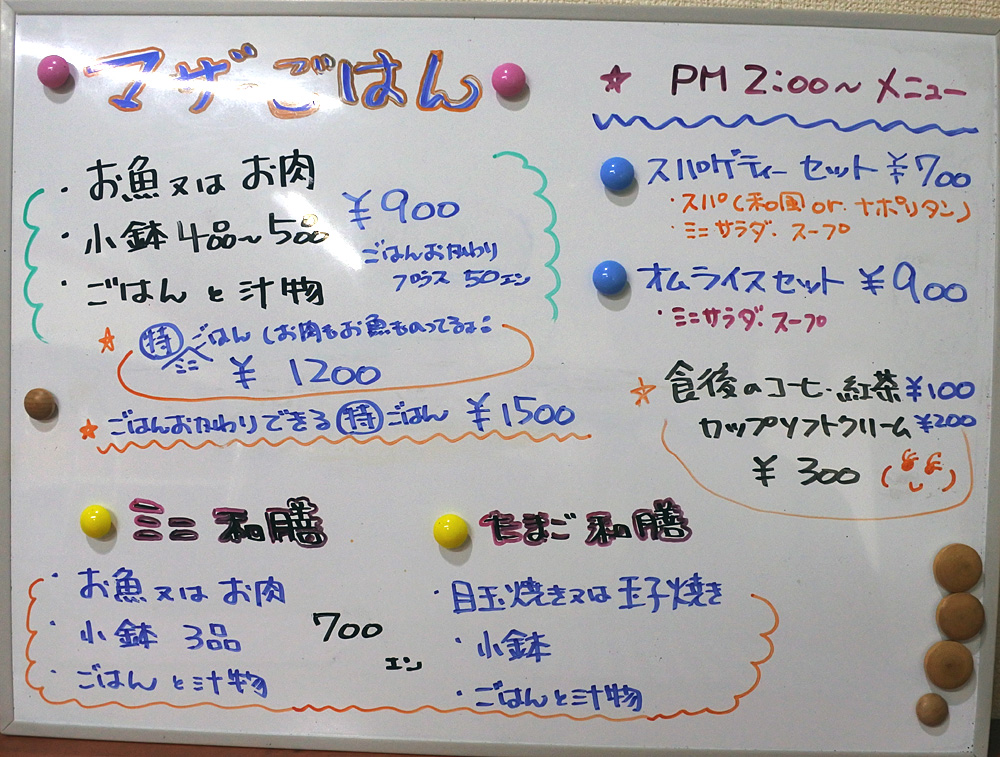 マザーごはん
・お魚又はお肉
・小鉢4品～5品
・ごはんと汁物
¥900
ごはんおかわり
プラス50エン
☆㊕ごはん(お肉もお魚ものってるよ:
ミニ
¥1200
☆ごはんおかわりできる㊕ごはん ¥1500
☆ PM2:00～メニュー
スパゲティーセット ¥700
・スパ(和風or.ナポリタン)
・ミニサラダ.スープ
オムライスセット ¥900
・ミニサラダ.スープ
☆食後のコーヒ・紅茶¥100
カップソフトクリーム¥200
¥300
ミニ和膳
・お魚又はお肉
・小鉢 3品
・ごはんと汁物
700
エン
たまご和膳
・目玉焼き又は玉子焼き
・小鉢
・ごはんと汁物